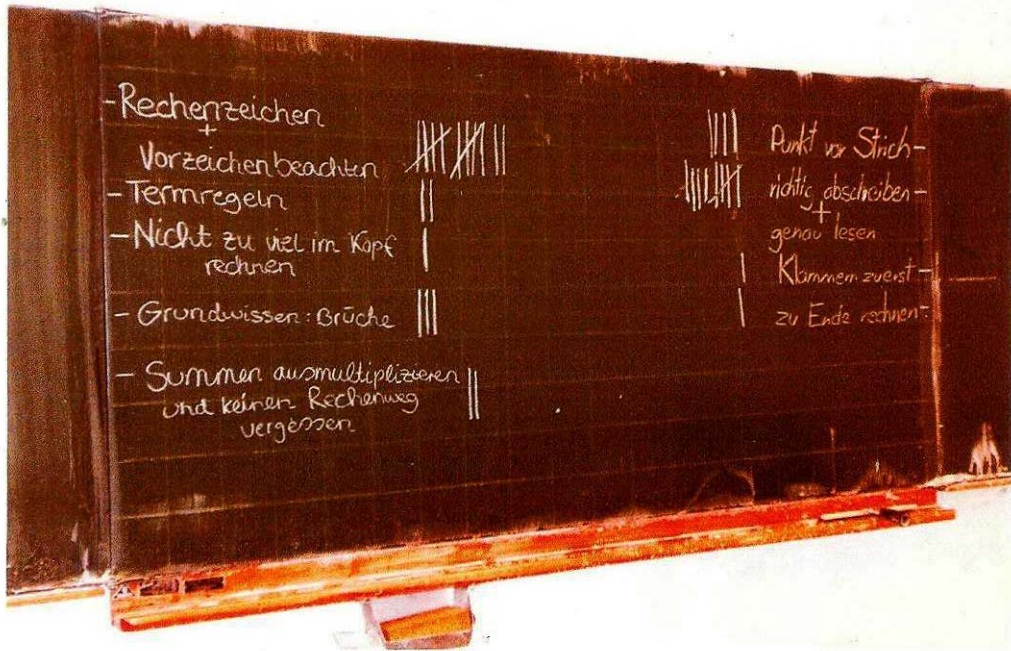 - Rechenzeichen
+
Vorzeichen beachten
- Termregeln
- Nicht zu viel im Kopf
rechnen
- Grundwissen: Brüche
- Summen ausmultiplizieren
und keinen Rechenweg
vergessen
Punkt vor Strich -
richtig abschreiben -
+
genau lesen
Klammern zuerst -
zu Ende rechnen -